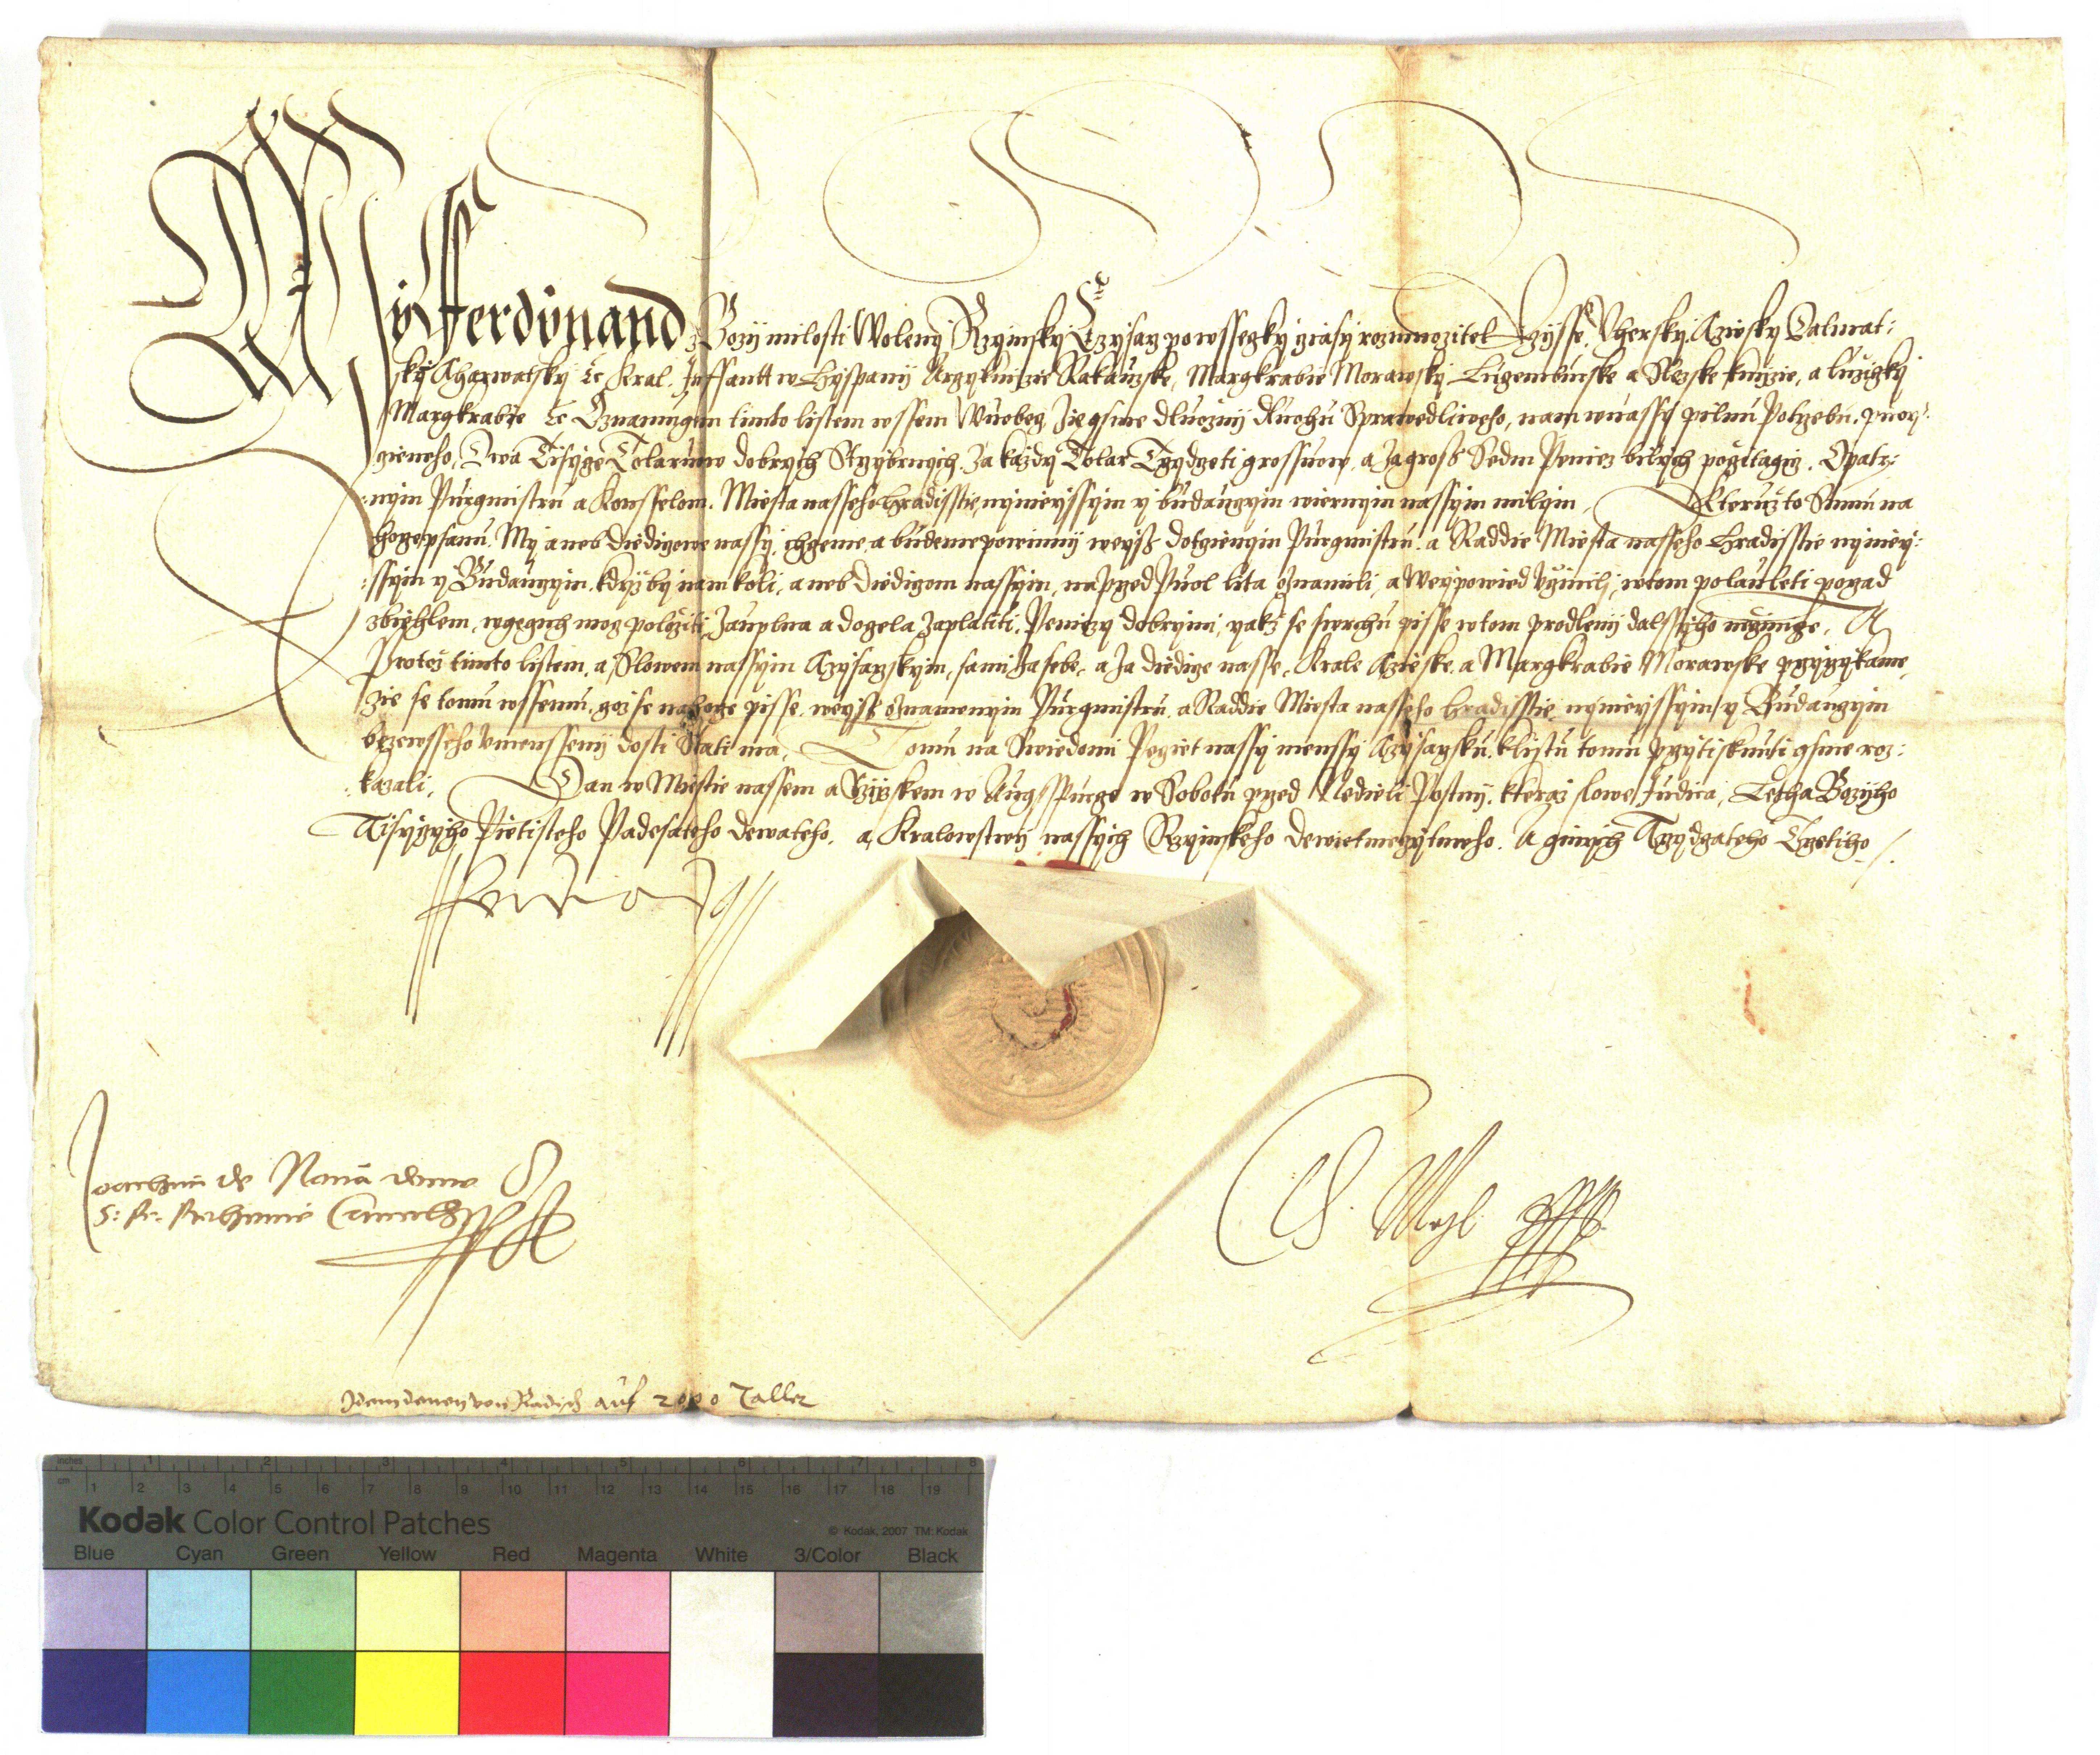 My Fferdynand z Bozy milosti Woleny Rzymsky Czysarz powssezky cziasy rozmnozitel Rzysse, Uhersky, Czesky, Dalmat:
sky Charwatsky &c Kral, Inffantt w Hyspany Arczyknize Rakauzske, Margkrabie Morawsky Luczemburske a Slezske knize, a Luziczky
Margkrabie &c Oznamugem timto listem wssem Wuobecz, Zie gsme dluozny dluohu Sprawedliweho, nam w nassy pilnu Potrzebu, puoy:
czieneho, Dwa Tisycze Tolaruow dobrych Strzybrnych, za kazdy Tolar Trzydczeti grossuow, a za gross Sedm Peniez bilych pocztagicz. Opatr:
nym Purgmistru a Konsselom. Miesta nasseho Hradisstie, nyniegssym y budauczym wiernym nassym milym, Kteruzto Summu na
horzepsanu, My aneb Diediczowe nassy, chczeme a budeme powinny weyss dotczienym Purgmistru, a Raddie Miesta nasseho Hradisstie nyniey:
ssym y Budauczym, kdyz by nam koli, aneb Diediczom nassym, naprzed Puol leta oznamili, a Weypowied uczinili, w tom polauleti porzad
zbiehlem, w gegich mocz polozitj Zauplna a docela Zaplatiti, Penizy dobrymi, yakz se swrchu pisse w tom prodleny dalssyho neczinicze, A
Protoz timto listem, a Slowem nassym Czysarzskym, sami za sebe, a za diedicze nasse, Krale Czeske, a Margkrabie Morawske przyrzykame,
zie se tomu wssemu, czoz se nahorze pisse, weyss oznamenym Purgmistru, a Raddie Miesta nasseho Hradisstie, nyniegssym y Budauczym
beze wsseho umensseny dosti Stati ma, Tomu na Swiedomi Peczet nassy menssy Czysarzsku, k listu tomu przytisknuti gsme roz:
kazali, Dan w Miestie nassem a Rzyzskem w AugsSpurge w Sobotu przed Nedieli Postny, kteraz slowe Judica, Letha Bozyho
Tisyczyho Pietisteho Padesateho dewateho, a Kralowstwy nassych Rzymskeho dewietmeczytmeho. A ginych Trzydczateho Trzetiho
Ferdinand
Joachim de Nova domo
S: Re: Bohemie Cancellarius
Idem denen von Radisch auf 2000 Taller
inches 1 2 3 4 5 6 7 8
cm 1 2 3 4 5 6 7 8 9 10 11 12 13 14 15 16 17 18 19
Kodak Color Control Patches
© Kodak, 2007 TM: Kodak
Blue Cyan Green Yellow Red Magenta White 3/Color Black